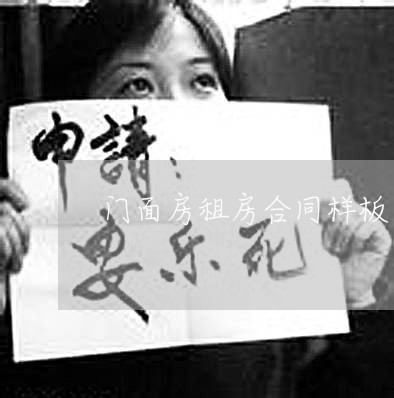 申請：
门面房租房合同样板
安乐死